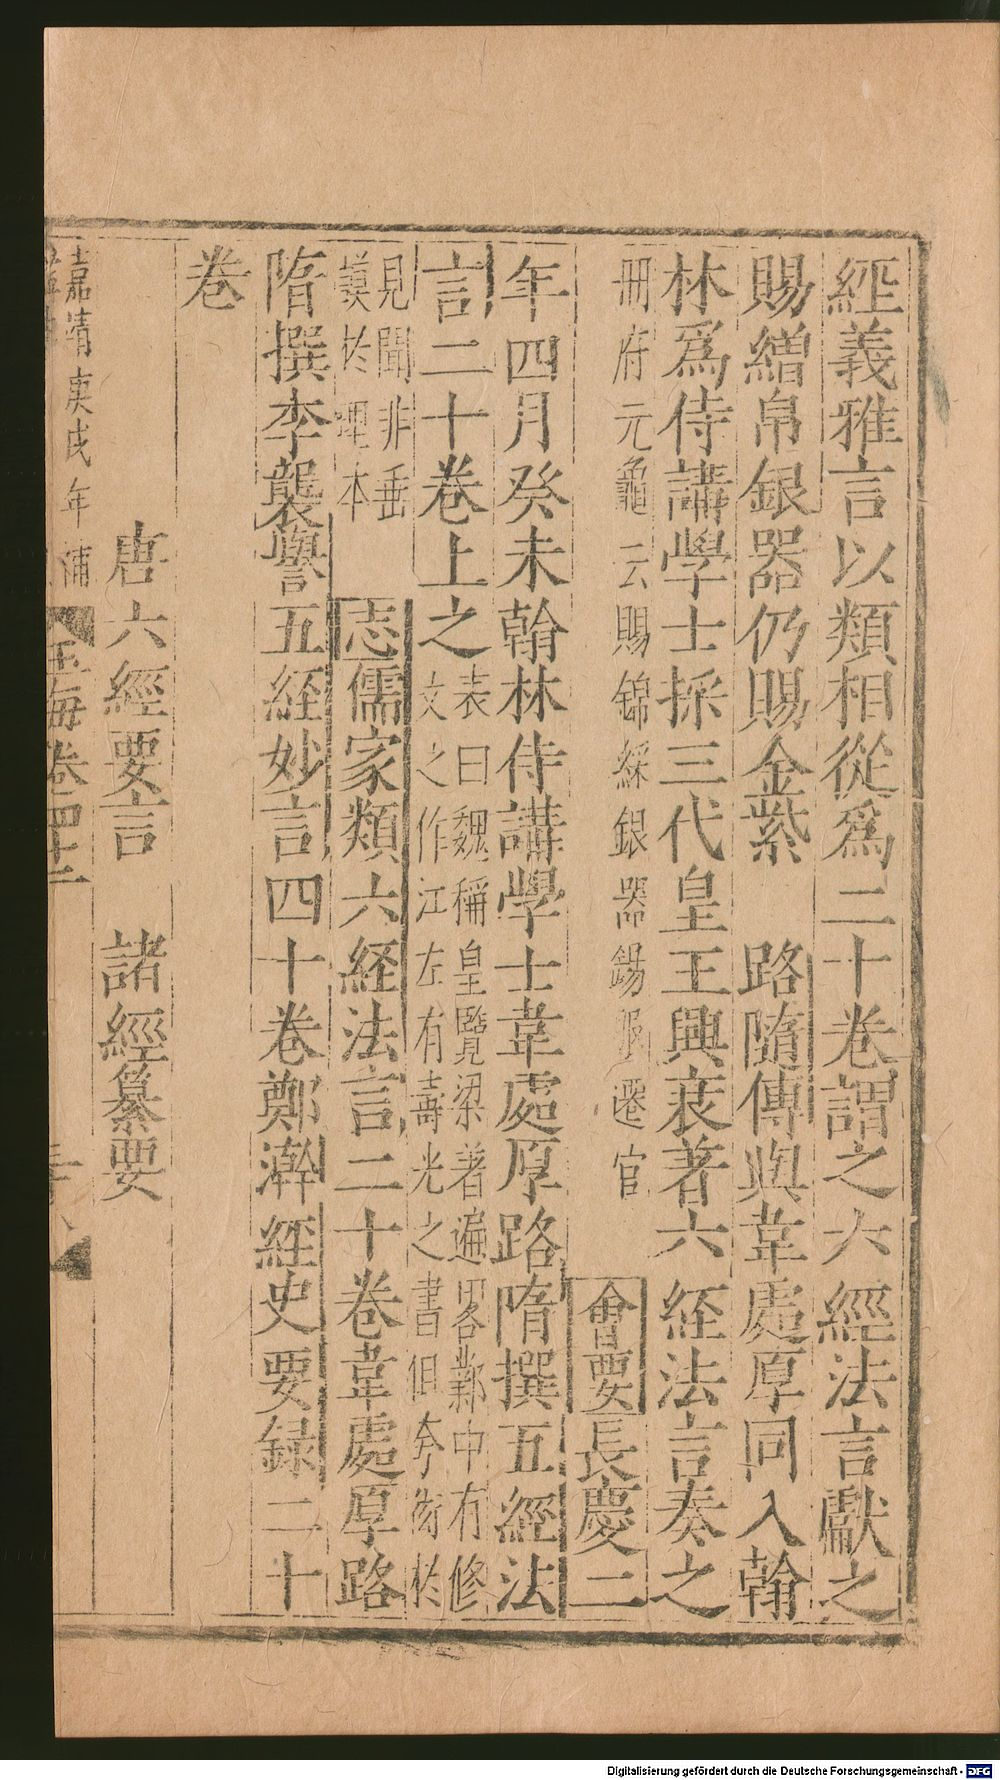 經義雅言以類相從爲二十卷謂之六經法言獻之
賜繒帛銀器仍賜金紫　路隨傳與韋處厚同入翰
林爲侍講學士採三代皇王興衰著六經法言奏之
冊府元龜云賜錦綵銀器錫服遷官　會要長慶二
年四月癸未翰林侍講學士韋處厚路隋撰五經法
言二十卷上之
表曰魏稱皇覽梁著遍畧鄴中有修
文之作江左有壽光之書但夸衒於
見聞非垂
謨於理本
志儒家類六經法言二十卷韋處厚路
隋撰李襲譽五經妙言四十卷鄭澣經史要録二十
卷
唐六經要言　諸經纂要
嘉靖庚戌年補
玉海卷四十二